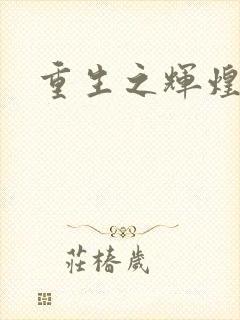 重生之輝煌
莊椿歲